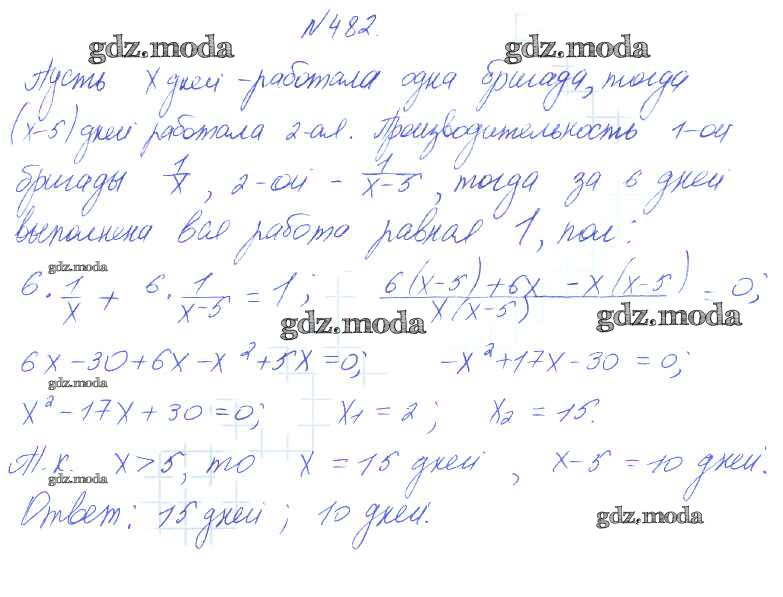 №482.
gdz.moda gdz.moda
Пусть х дней - работала одна бригада, тогда
(х-5) дней работала 2-ая. Производительность 1-ой
бригады 1/х, 2-ой - 1/(х-5), тогда за 6 дней
выполнена вся работа равная 1, пол:
gdz.moda
6 · 1/х + 6 · 1/(х-5) = 1; (6(х-5)+6х - х(х-5))/(х(х-5)) = 0;
gdz.moda gdz.moda
6х-30+6х-х²+5х=0; -х²+17х-30=0;
gdz.moda
х²-17х+30=0; х₁=2; х₂=15.
Т.к. х>5, то х=15 дней, х-5=10 дней.
gdz.moda
Ответ: 15 дней; 10 дней.
gdz.moda